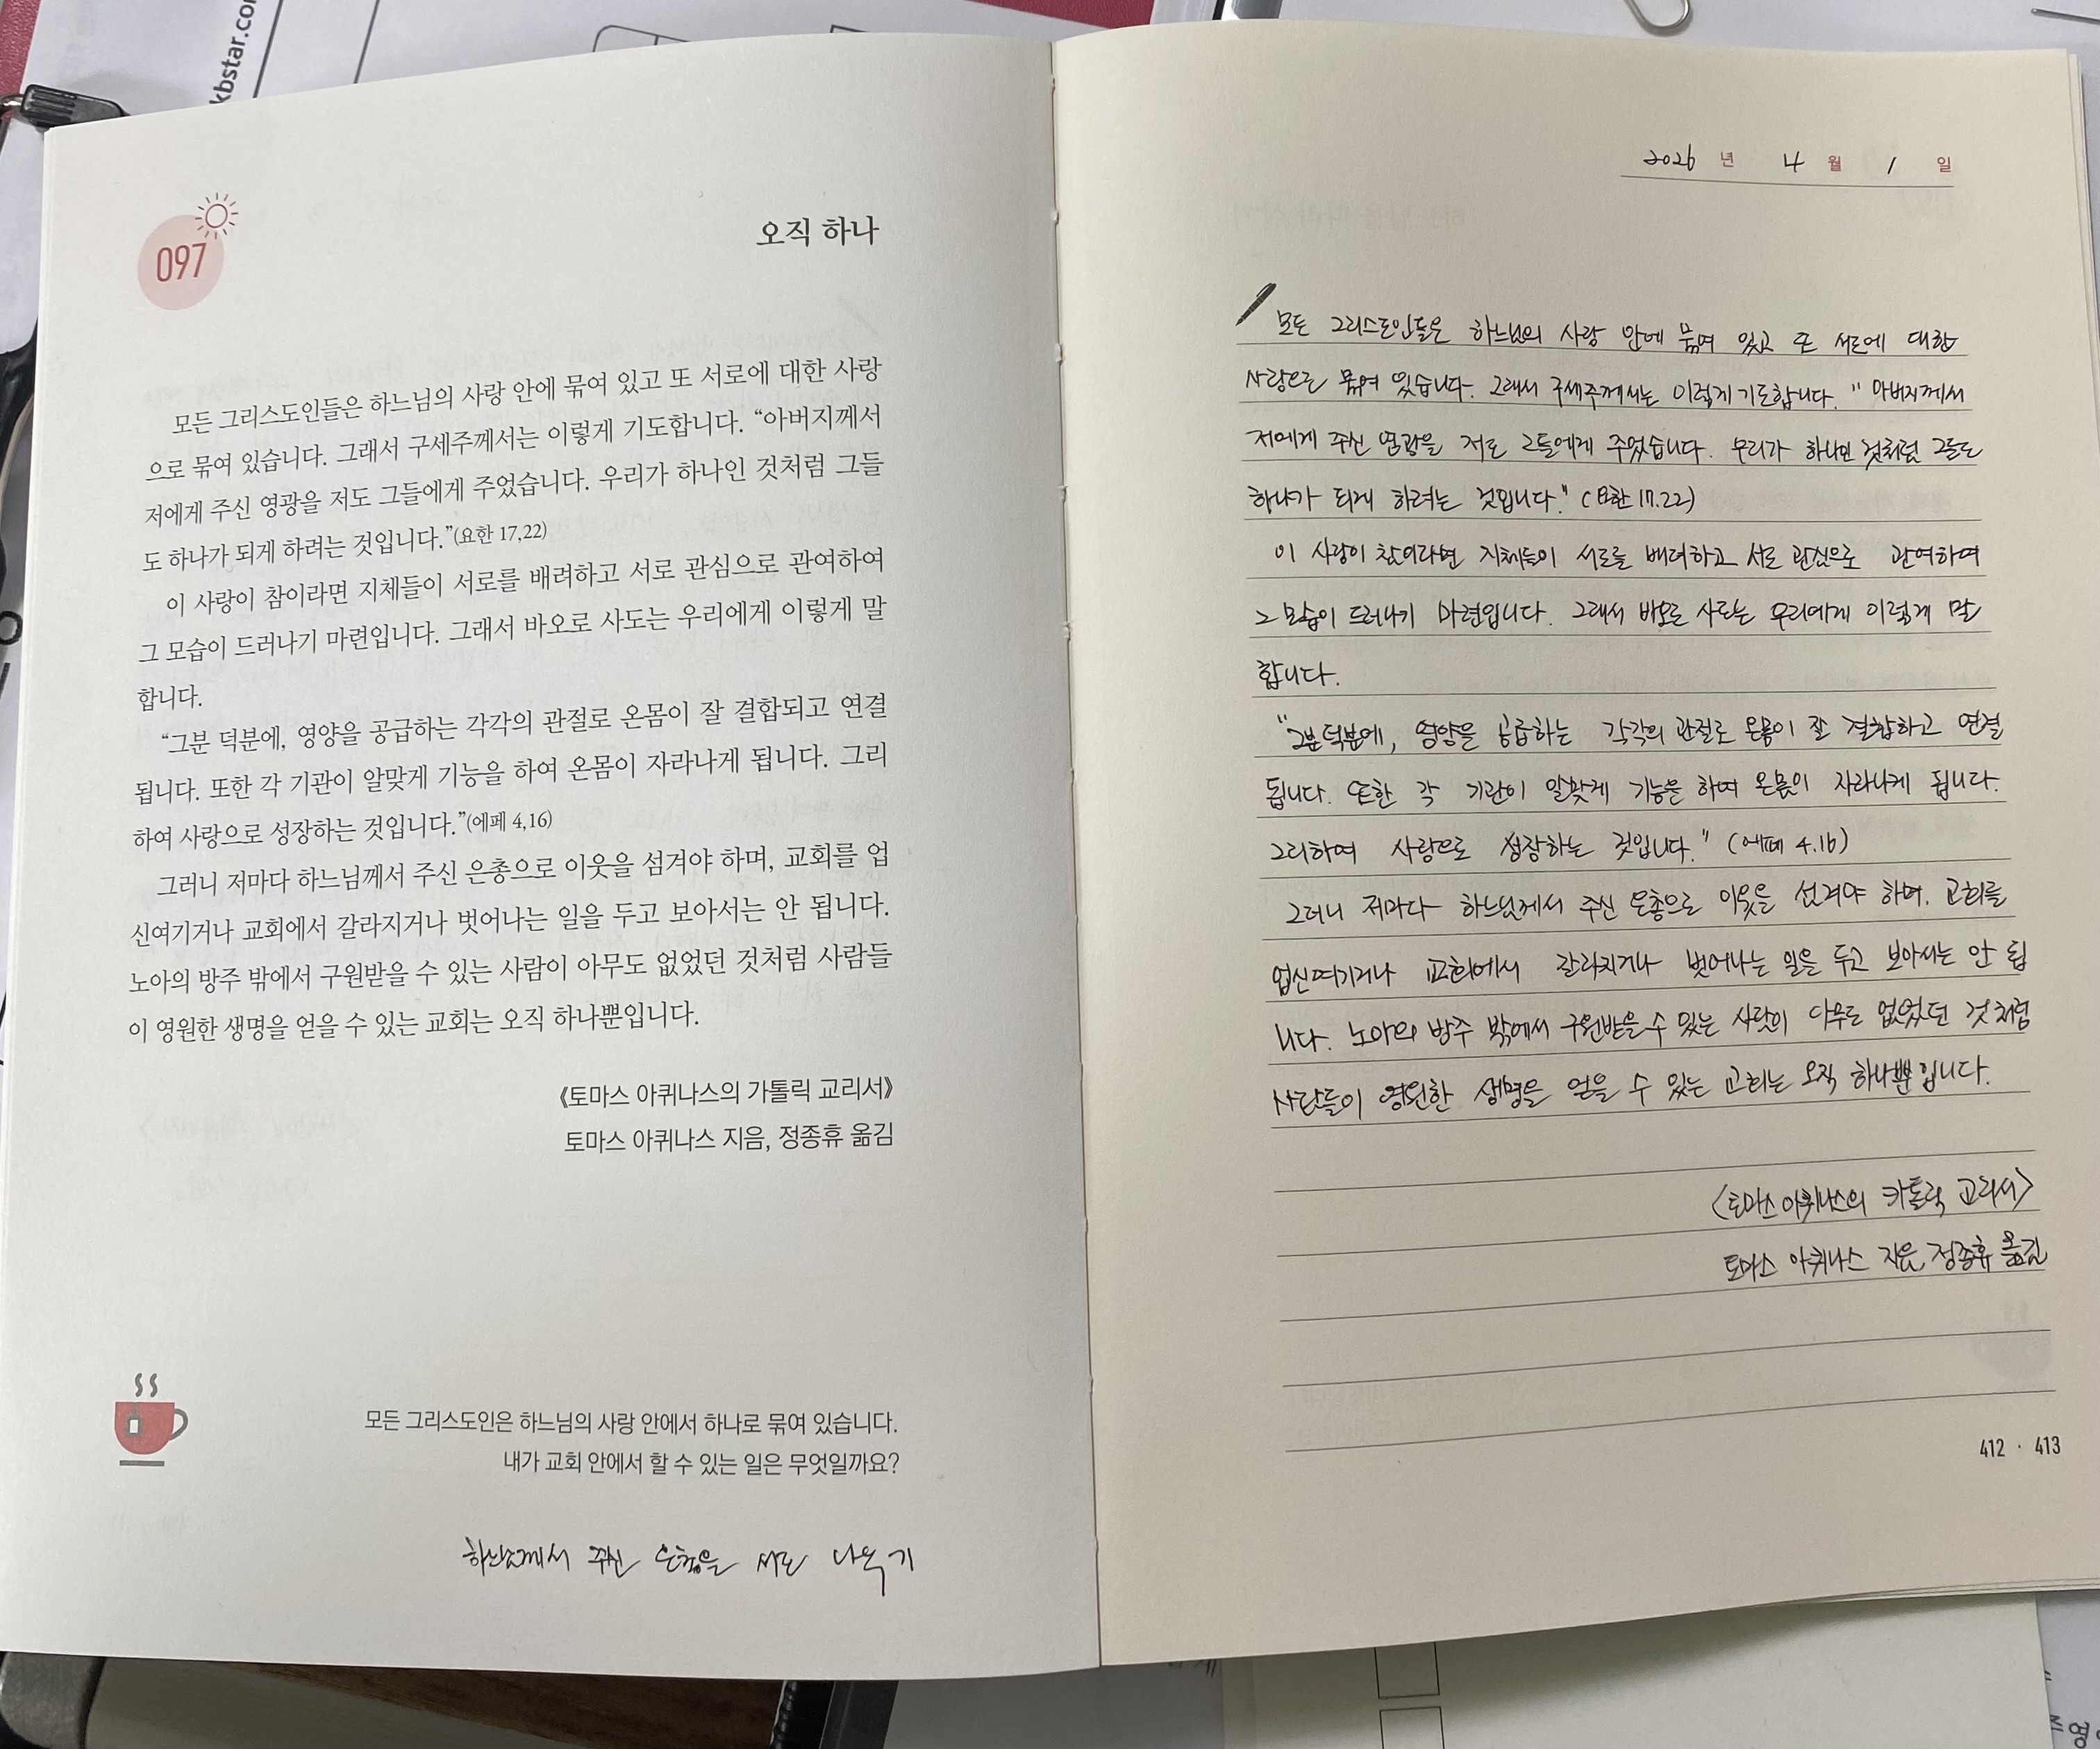 kbstar.co
097
오직 하나
모든 그리스도인들은 하느님의 사랑 안에 묶여 있고 또 서로에 대한 사랑
으로 묶여 있습니다. 그래서 구세주께서는 이렇게 기도합니다. “아버지께서
저에게 주신 영광을 저도 그들에게 주었습니다. 우리가 하나인 것처럼 그들
도 하나가 되게 하려는 것입니다.”(요한 17,22)
이 사랑이 참이라면 지체들이 서로를 배려하고 서로 관심으로 관여하여
그 모습이 드러나기 마련입니다. 그래서 바오로 사도는 우리에게 이렇게 말
합니다.
“그분 덕분에, 영양을 공급하는 각각의 관절로 온몸이 잘 결합되고 연결
됩니다. 또한 각 기관이 알맞게 기능을 하여 온몸이 자라나게 됩니다. 그리
하여 사랑으로 성장하는 것입니다.”(에페 4,16)
그러니 저마다 하느님께서 주신 은총으로 이웃을 섬겨야 하며, 교회를 업
신여기거나 교회에서 갈라지거나 벗어나는 일을 두고 보아서는 안 됩니다.
노아의 방주 밖에서 구원받을 수 있는 사람이 아무도 없었던 것처럼 사람들
이 영원한 생명을 얻을 수 있는 교회는 오직 하나뿐입니다.
《토마스 아퀴나스의 가톨릭 교리서》
토마스 아퀴나스 지음, 정종휴 옮김
모든 그리스도인은 하느님의 사랑 안에서 하나로 묶여 있습니다.
내가 교회 안에서 할 수 있는 일은 무엇일까요?
하느님께서 주신 은총을 서로 나누기
2026 년 4 월 1 일
모든 그리스도인들은 하느님의 사랑 안에 묶여 있고 또 서로에 대한
사랑으로 묶여 있습니다. 그래서 구세주께서는 이렇게 기도합니다. "아버지께서
저에게 주신 영광을 저도 그들에게 주었습니다. 우리가 하나인 것처럼 그들도
하나가 되게 하려는 것입니다." (요한 17.22)
이 사랑이 참이라면 지체들이 서로를 배려하고 서로 관심으로 관여하여
그 모습이 드러나기 마련입니다. 그래서 바오로 사도는 우리에게 이렇게 말
합니다.
"그분 덕분에, 영양을 공급하는 각각의 관절로 온몸이 잘 결합하고 연결
됩니다. 또한 각 기관이 알맞게 기능을 하여 온몸이 자라나게 됩니다.
그리하여 사랑으로 성장하는 것입니다." (에페 4.16)
그러니 저마다 하느님께서 주신 은총으로 이웃을 섬겨야 하며, 교회를
업신여기거나 교회에서 갈라지거나 벗어나는 일을 두고 보아서는 안 됩
니다. 노아의 방주 밖에서 구원받을 수 있는 사람이 아무도 없었던 것처럼
사람들이 영원한 생명을 얻을 수 있는 교회는 오직 하나뿐입니다.
〈토마스 아퀴나스의 카톨릭 교리서〉
토마스 아퀴나스 지음, 정종휴 옮김
412 · 413